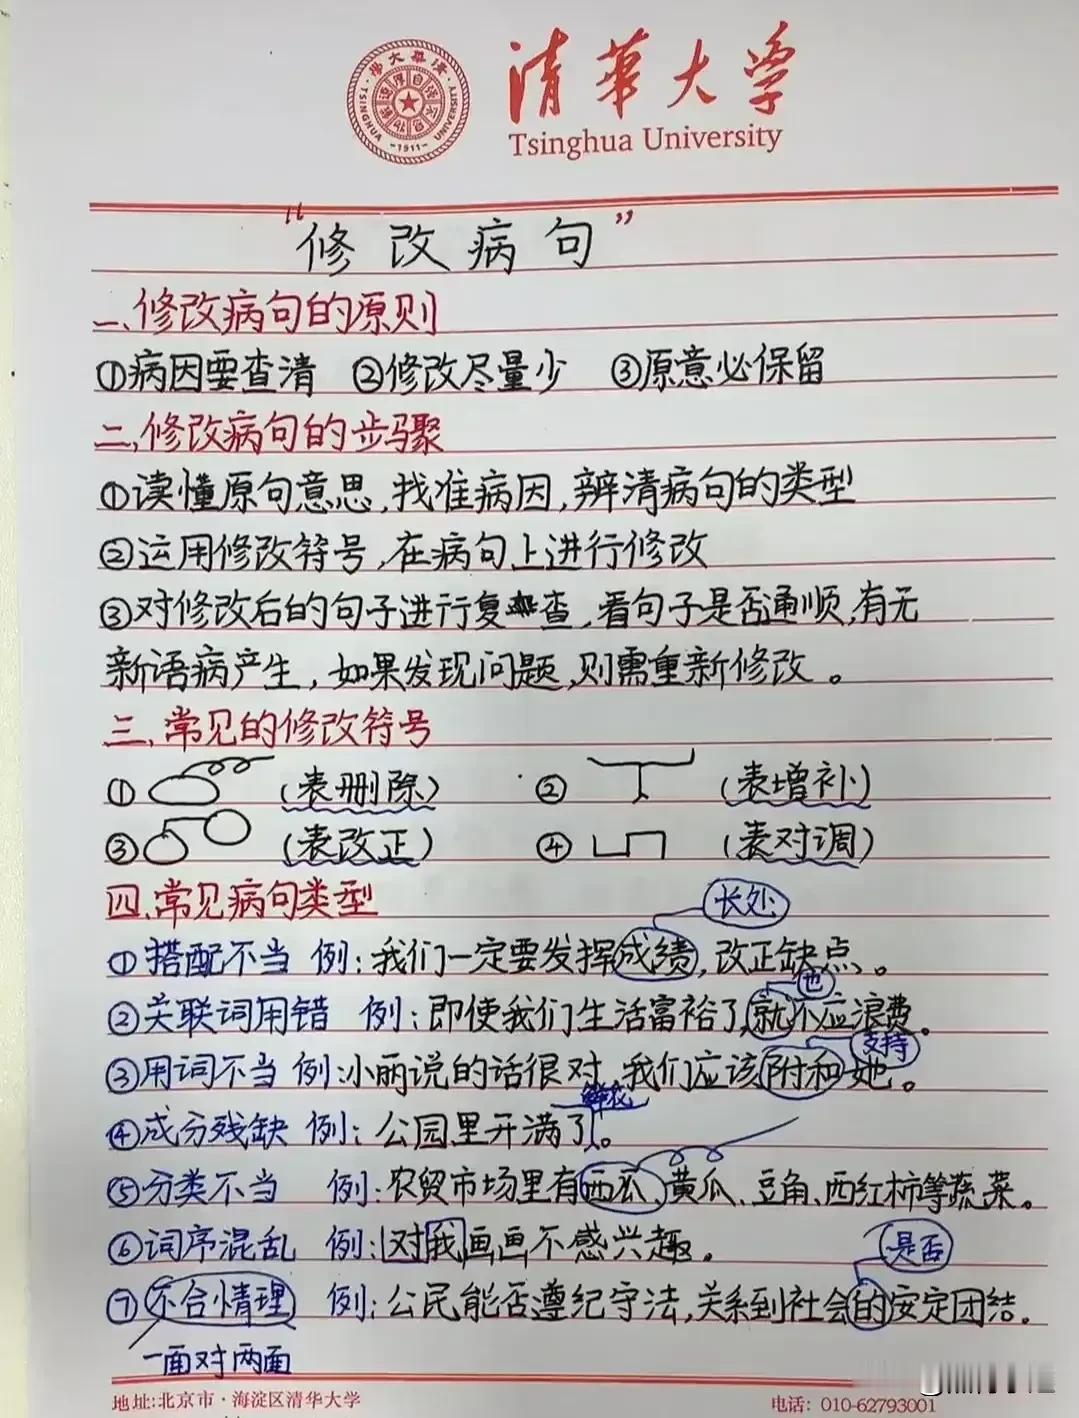 清華大学
Tsinghua University
“修改病句”
一、修改病句的原则
①病因要查清 ②修改尽量少 ③原意必保留
二、修改病句的步骤
①读懂原句意思,找准病因,辨清病句的类型
②运用修改符号,在病句上进行修改
③对修改后的句子进行复查,看句子是否通顺,有无
新语病产生,如果发现问题,则需重新修改。
三、常见的修改符号
① (表删除) ② (表增补)
③ (表改正) ④ (表对调)
四、常见病句类型
长处
①搭配不当 例:我们一定要发挥成绩,改正缺点。
也
②关联词用错 例:即使我们生活富裕了,就不应浪费。
支持
③用词不当 例:小丽说的话很对,我们应该附和她。
鲜花
④成分残缺 例:公园里开满了。
⑤分类不当 例:农贸市场里有西瓜、黄瓜、豆角、西红柿等蔬菜。
⑥词序混乱 例:对我画画不感兴趣。
是否
⑦不合情理 例:公民能否遵纪守法,关系到社会的安定团结。
一面对两面
地址:北京市·海淀区清华大学
电话: 010-62793001